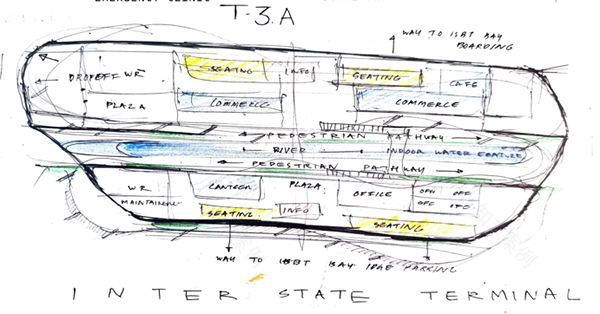 EMERGENCY CLINIC
T-3.A
WAY TO ISBT BAY
BOARDING
DROPOFF WR SEATING INFO SEATING CAFE
PLAZA COMMERCE COMMERCE
PEDESTRIAN PATHWAY
RIVER INDOOR WATER FEATURE
PEDESTRIAN PATHWAY
WR CANTEEN PLAZA OFFICE
MAINTAINENCE SEATING INFO SEATING
WAY TO ISBT BAY IDLE PARKING
INTER STATE TERMINAL